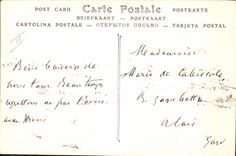 POST CARD Carte Postale POSTKARTE
BRIEFKAART - POSTKAART
CARTOLINA POSTALE - ОТКРЫТОЕ ПИСЬМО - TARJETA POSTAL
Bons baisers de
nous tous. Beau temps
regrettons ne pas
avec
Mademoiselle
Marie de
R. Gambetta
Alais
Gard